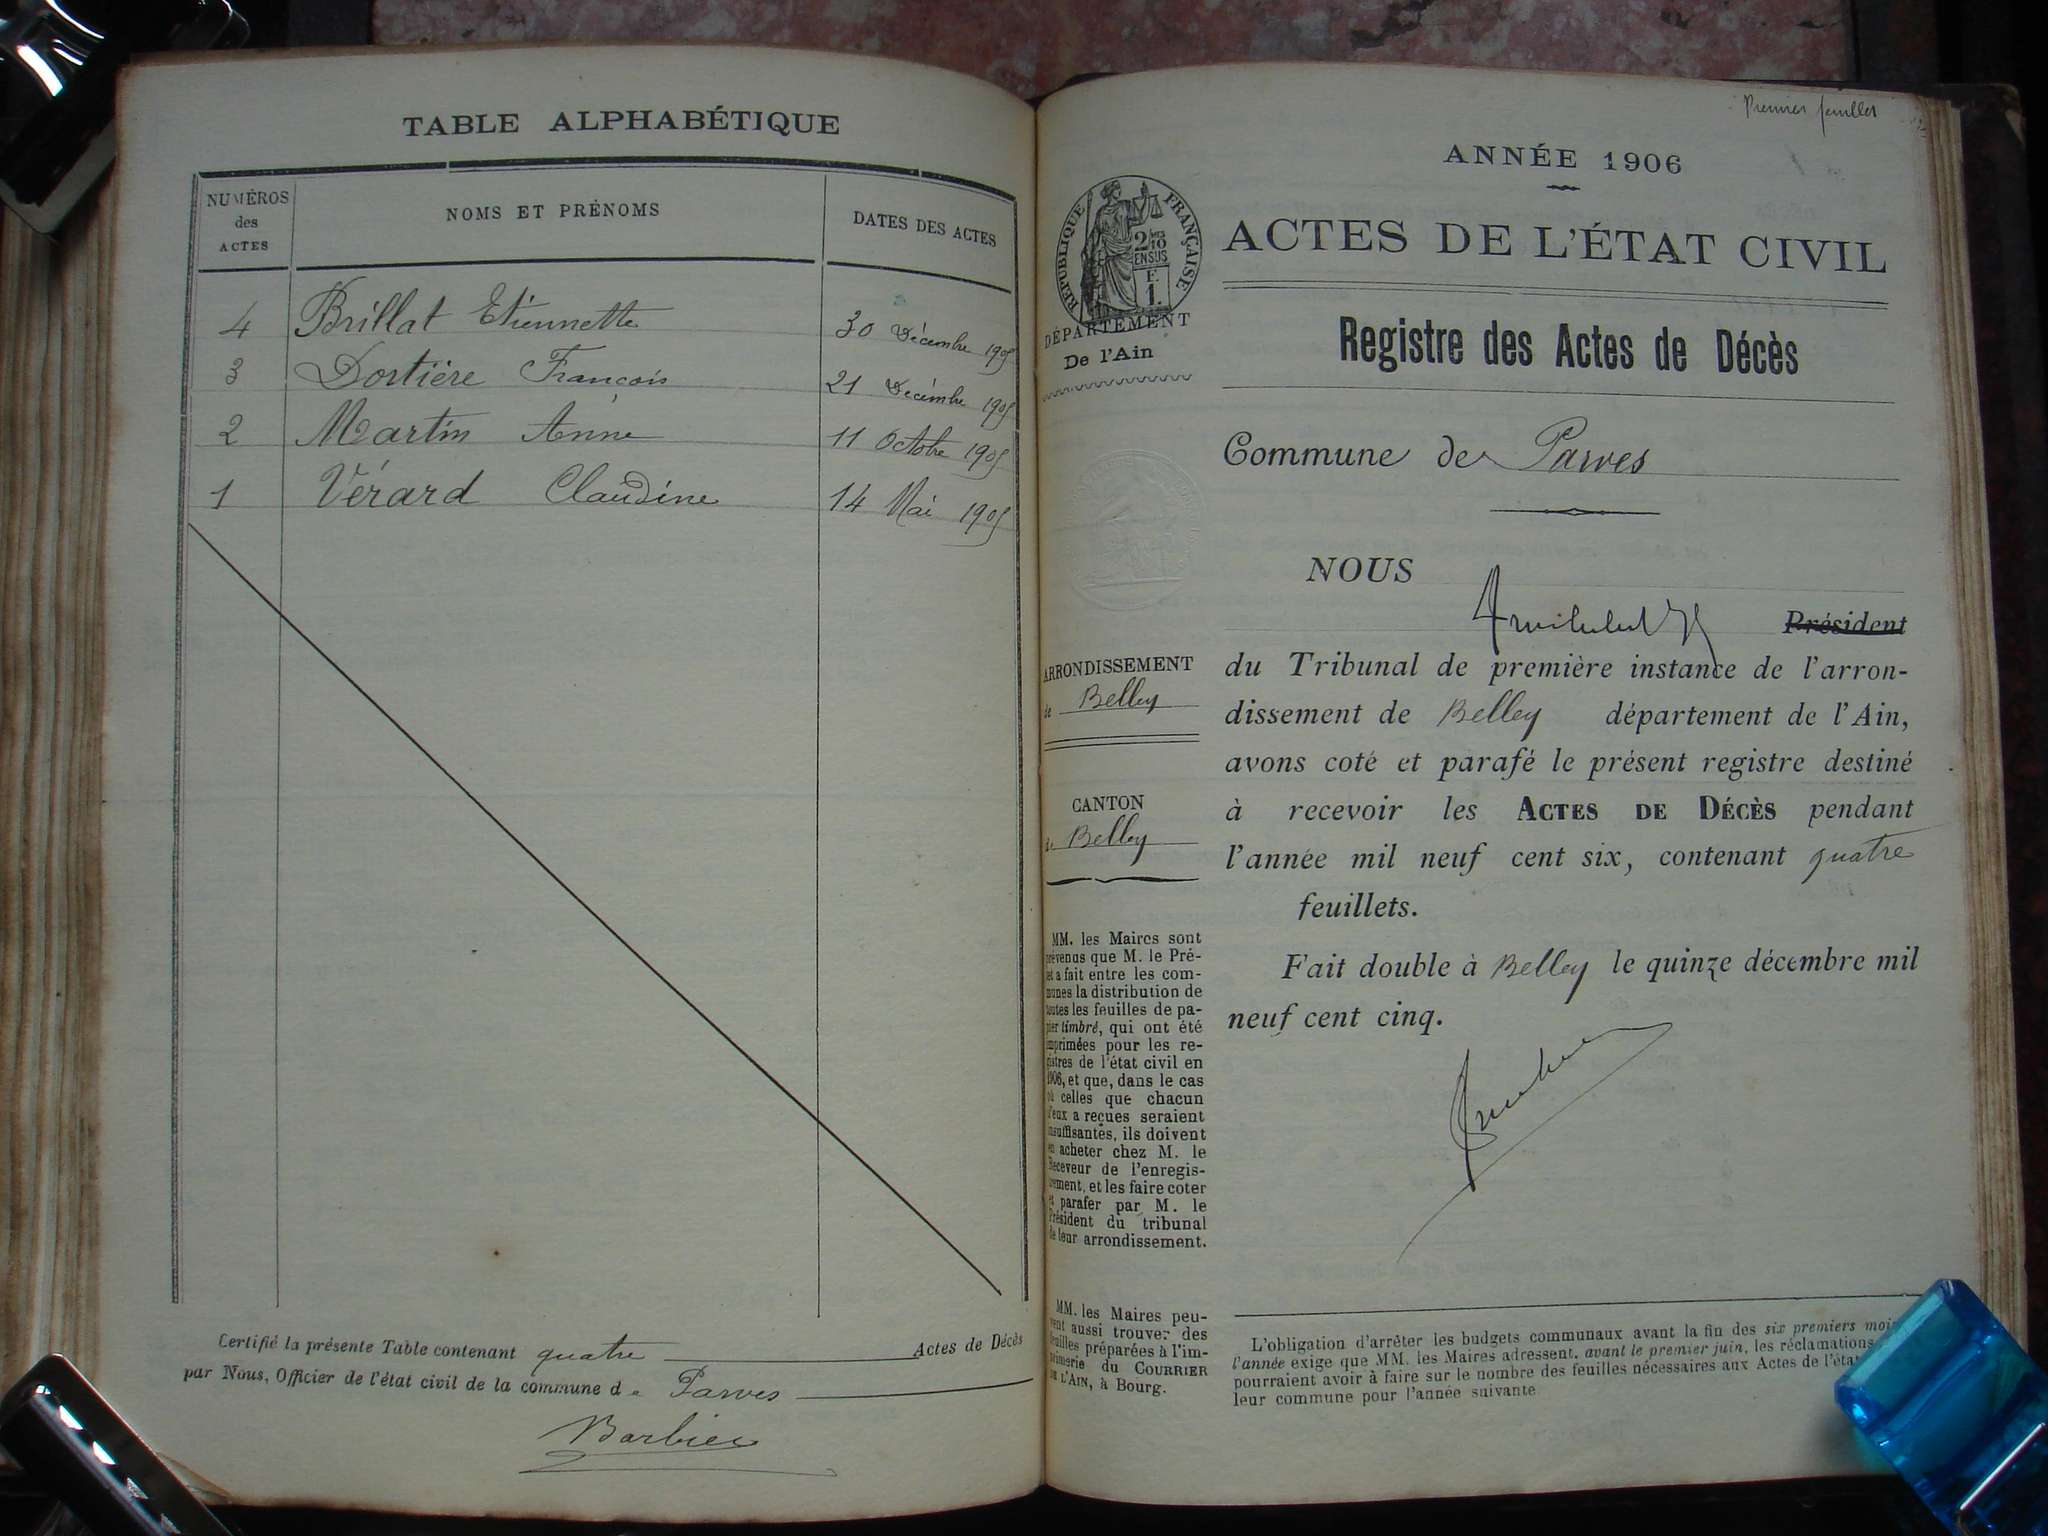 TABLE ALPHABÉTIQUE
NUMÉROS
des
ACTES
NOMS ET PRÉNOMS
DATES DES ACTES
4 Brillat Etiennette 30 Décembre 1905
3 Dortière François 21 Décembre 1905
2 Martin Anne 11 Octobre 1905
1 Vérard Claudine 14 Mai 1905
Certifié la présente Table contenant quatre Actes de Décès
par Nous, Officier de l'état civil de la commune de Parves
Barbier
Premier feuillet
ANNÉE 1906
RÉPUBLIQUE FRANÇAISE
2/10
EN SUS
F.
1.
DÉPARTEMENT
De l'Ain
ACTES DE L'ÉTAT CIVIL
Registre des Actes de Décès
Commune de Parves
NOUS
Président
du Tribunal de première instance de l'arron-
dissement de Belley département de l'Ain,
avons coté et parafé le présent registre destiné
à recevoir les ACTES DE DÉCÈS pendant
l'année mil neuf cent six, contenant quatre
feuillets.
Fait double à Belley le quinze décembre mil
neuf cent cinq.
ARRONDISSEMENT
de Belley
CANTON
de Belley
MM. les Maires sont
prévenus que M. le Pré-
fet a fait entre les com-
munes la distribution de
toutes les feuilles de pa-
pier timbré, qui ont été
imprimées pour les re-
gistres de l'état civil en
1906, et que, dans le cas
où celles que chacun
d'eux a reçues seraient
insuffisantes, ils doivent
en acheter chez M. le
Receveur de l'enregis-
trement, et les faire coter
et parafer par M. le
Président du tribunal
de leur arrondissement.
MM. les Maires peu-
vent aussi trouver des
feuilles préparées à l'im-
primerie du COURRIER
DE L'AIN, à Bourg.
L'obligation d'arrêter les budgets communaux avant la fin des six premiers mois
l'année exige que MM. les Maires adressent, avant le premier juin, les réclamations
pourraient avoir à faire sur le nombre des feuilles nécessaires aux Actes de l'état
leur commune pour l'année suivante